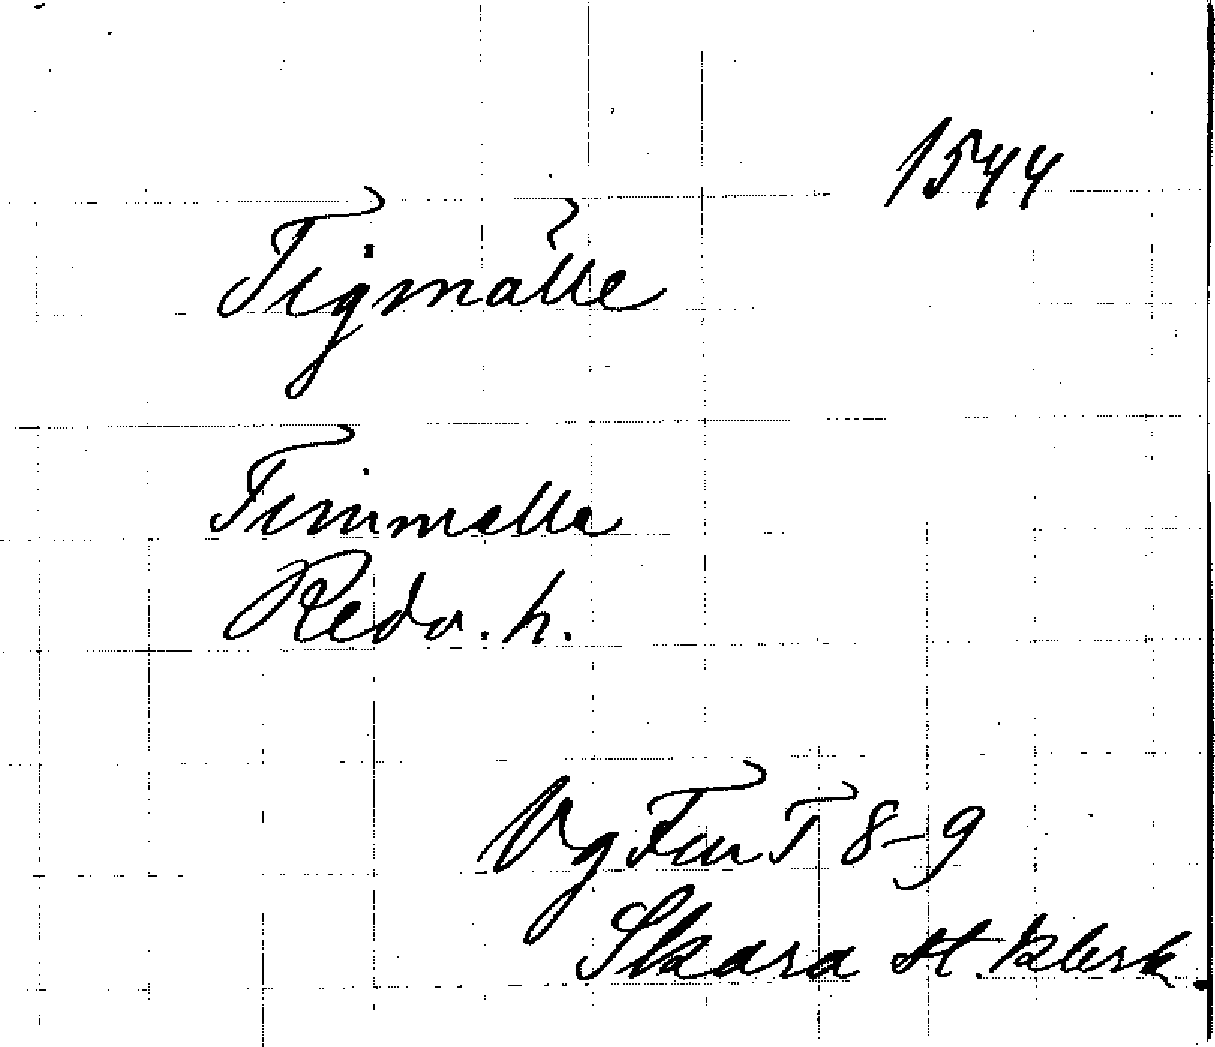 1544
Tigmålle
Timmelle
Redv. h.
Vg Fur T 8-9
Skara st. klerk.